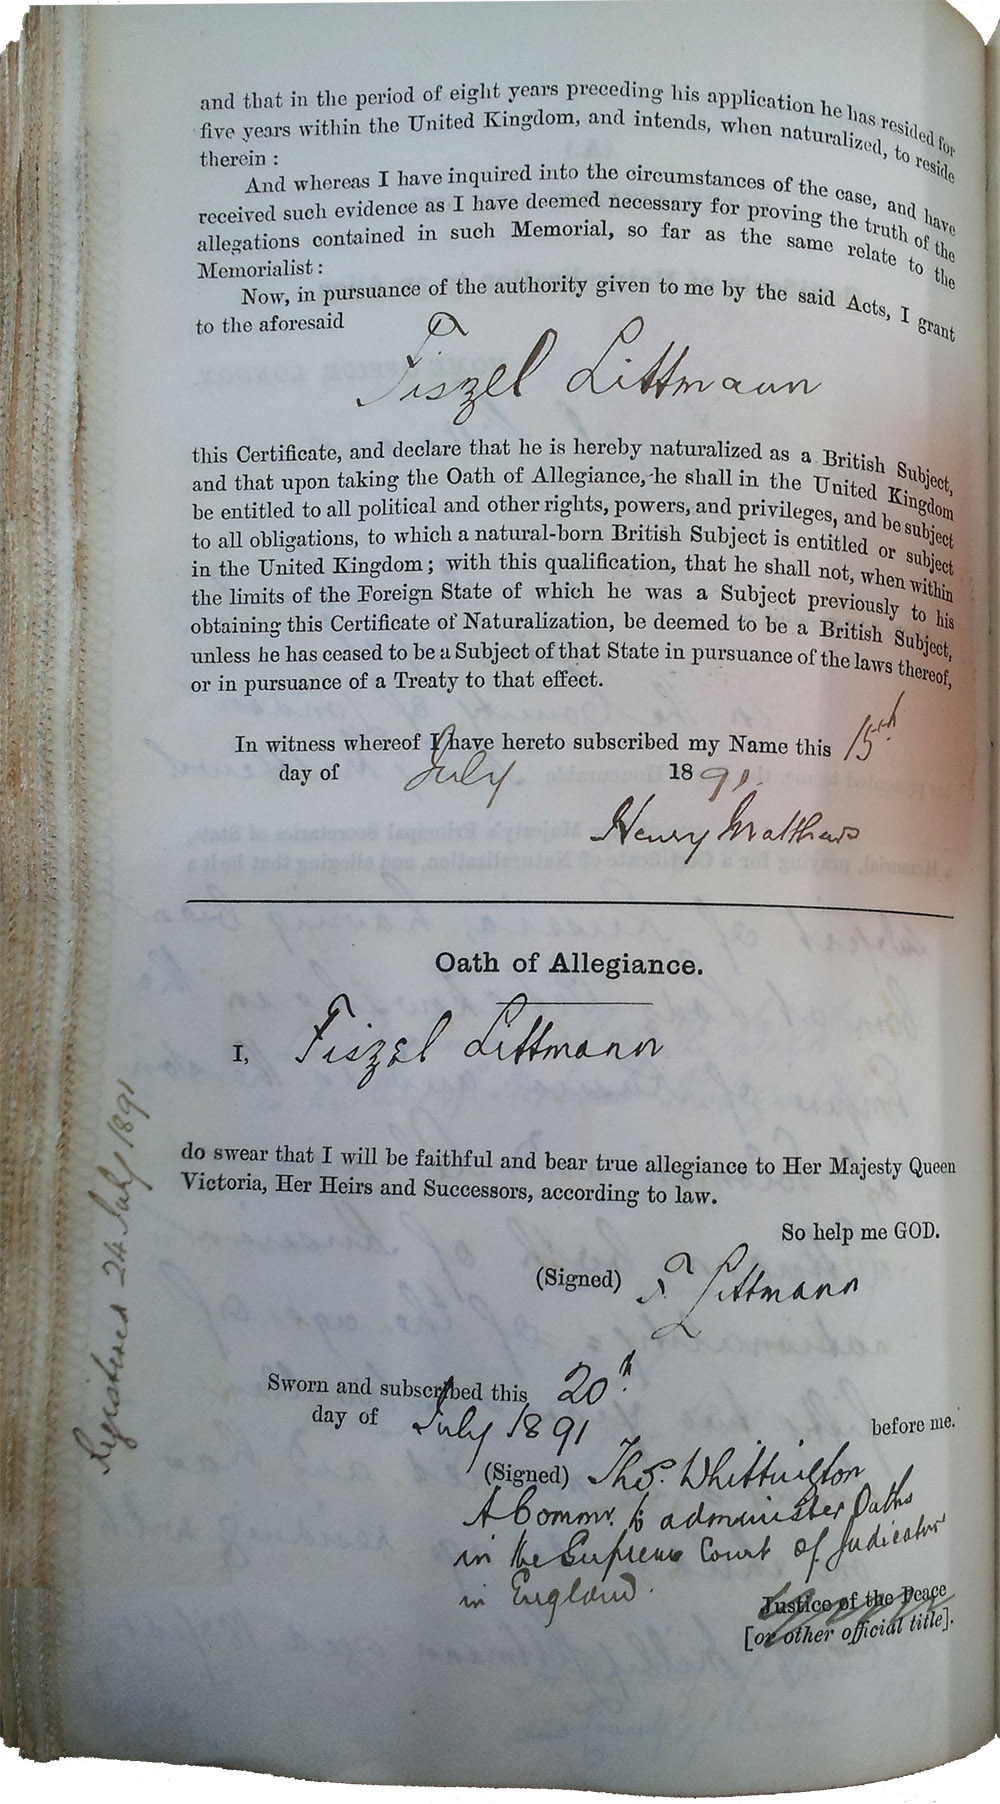 and that in the period of eight years preceding his application he has resided for
five years within the United Kingdom, and intends, when naturalized, to reside
therein :
And whereas I have inquired into the circumstances of the case, and have
received such evidence as I have deemed necessary for proving the truth of the
allegations contained in such Memorial, so far as the same relate to the
Memorialist :
Now, in pursuance of the authority given to me by the said Acts, I grant
to the aforesaid
Fiszel Littmann
this Certificate, and declare that he is hereby naturalized as a British Subject,
and that upon taking the Oath of Allegiance, he shall in the United Kingdom
be entitled to all political and other rights, powers, and privileges, and be subject
to all obligations, to which a natural-born British Subject is entitled or subject
in the United Kingdom ; with this qualification, that he shall not, when within
the limits of the Foreign State of which he was a Subject previously to his
obtaining this Certificate of Naturalization, be deemed to be a British Subject,
unless he has ceased to be a Subject of that State in pursuance of the laws thereof,
or in pursuance of a Treaty to that effect.
In witness whereof I have hereto subscribed my Name this 15th
day of July 1891.
Henry Matthews
Oath of Allegiance.
I, Fiszel Littmann
do swear that I will be faithful and bear true allegiance to Her Majesty Queen
Victoria, Her Heirs and Successors, according to law.
So help me GOD.
(Signed) F. Littmann
Sworn and subscribed this 20th
day of July 1891 before me.
(Signed) Thos. Whittington
A Commr. to administer Oaths
in the Supreme Court of Judicature
in England.
Justice of the Peace
[or other official title].
Registered 24 July 1891